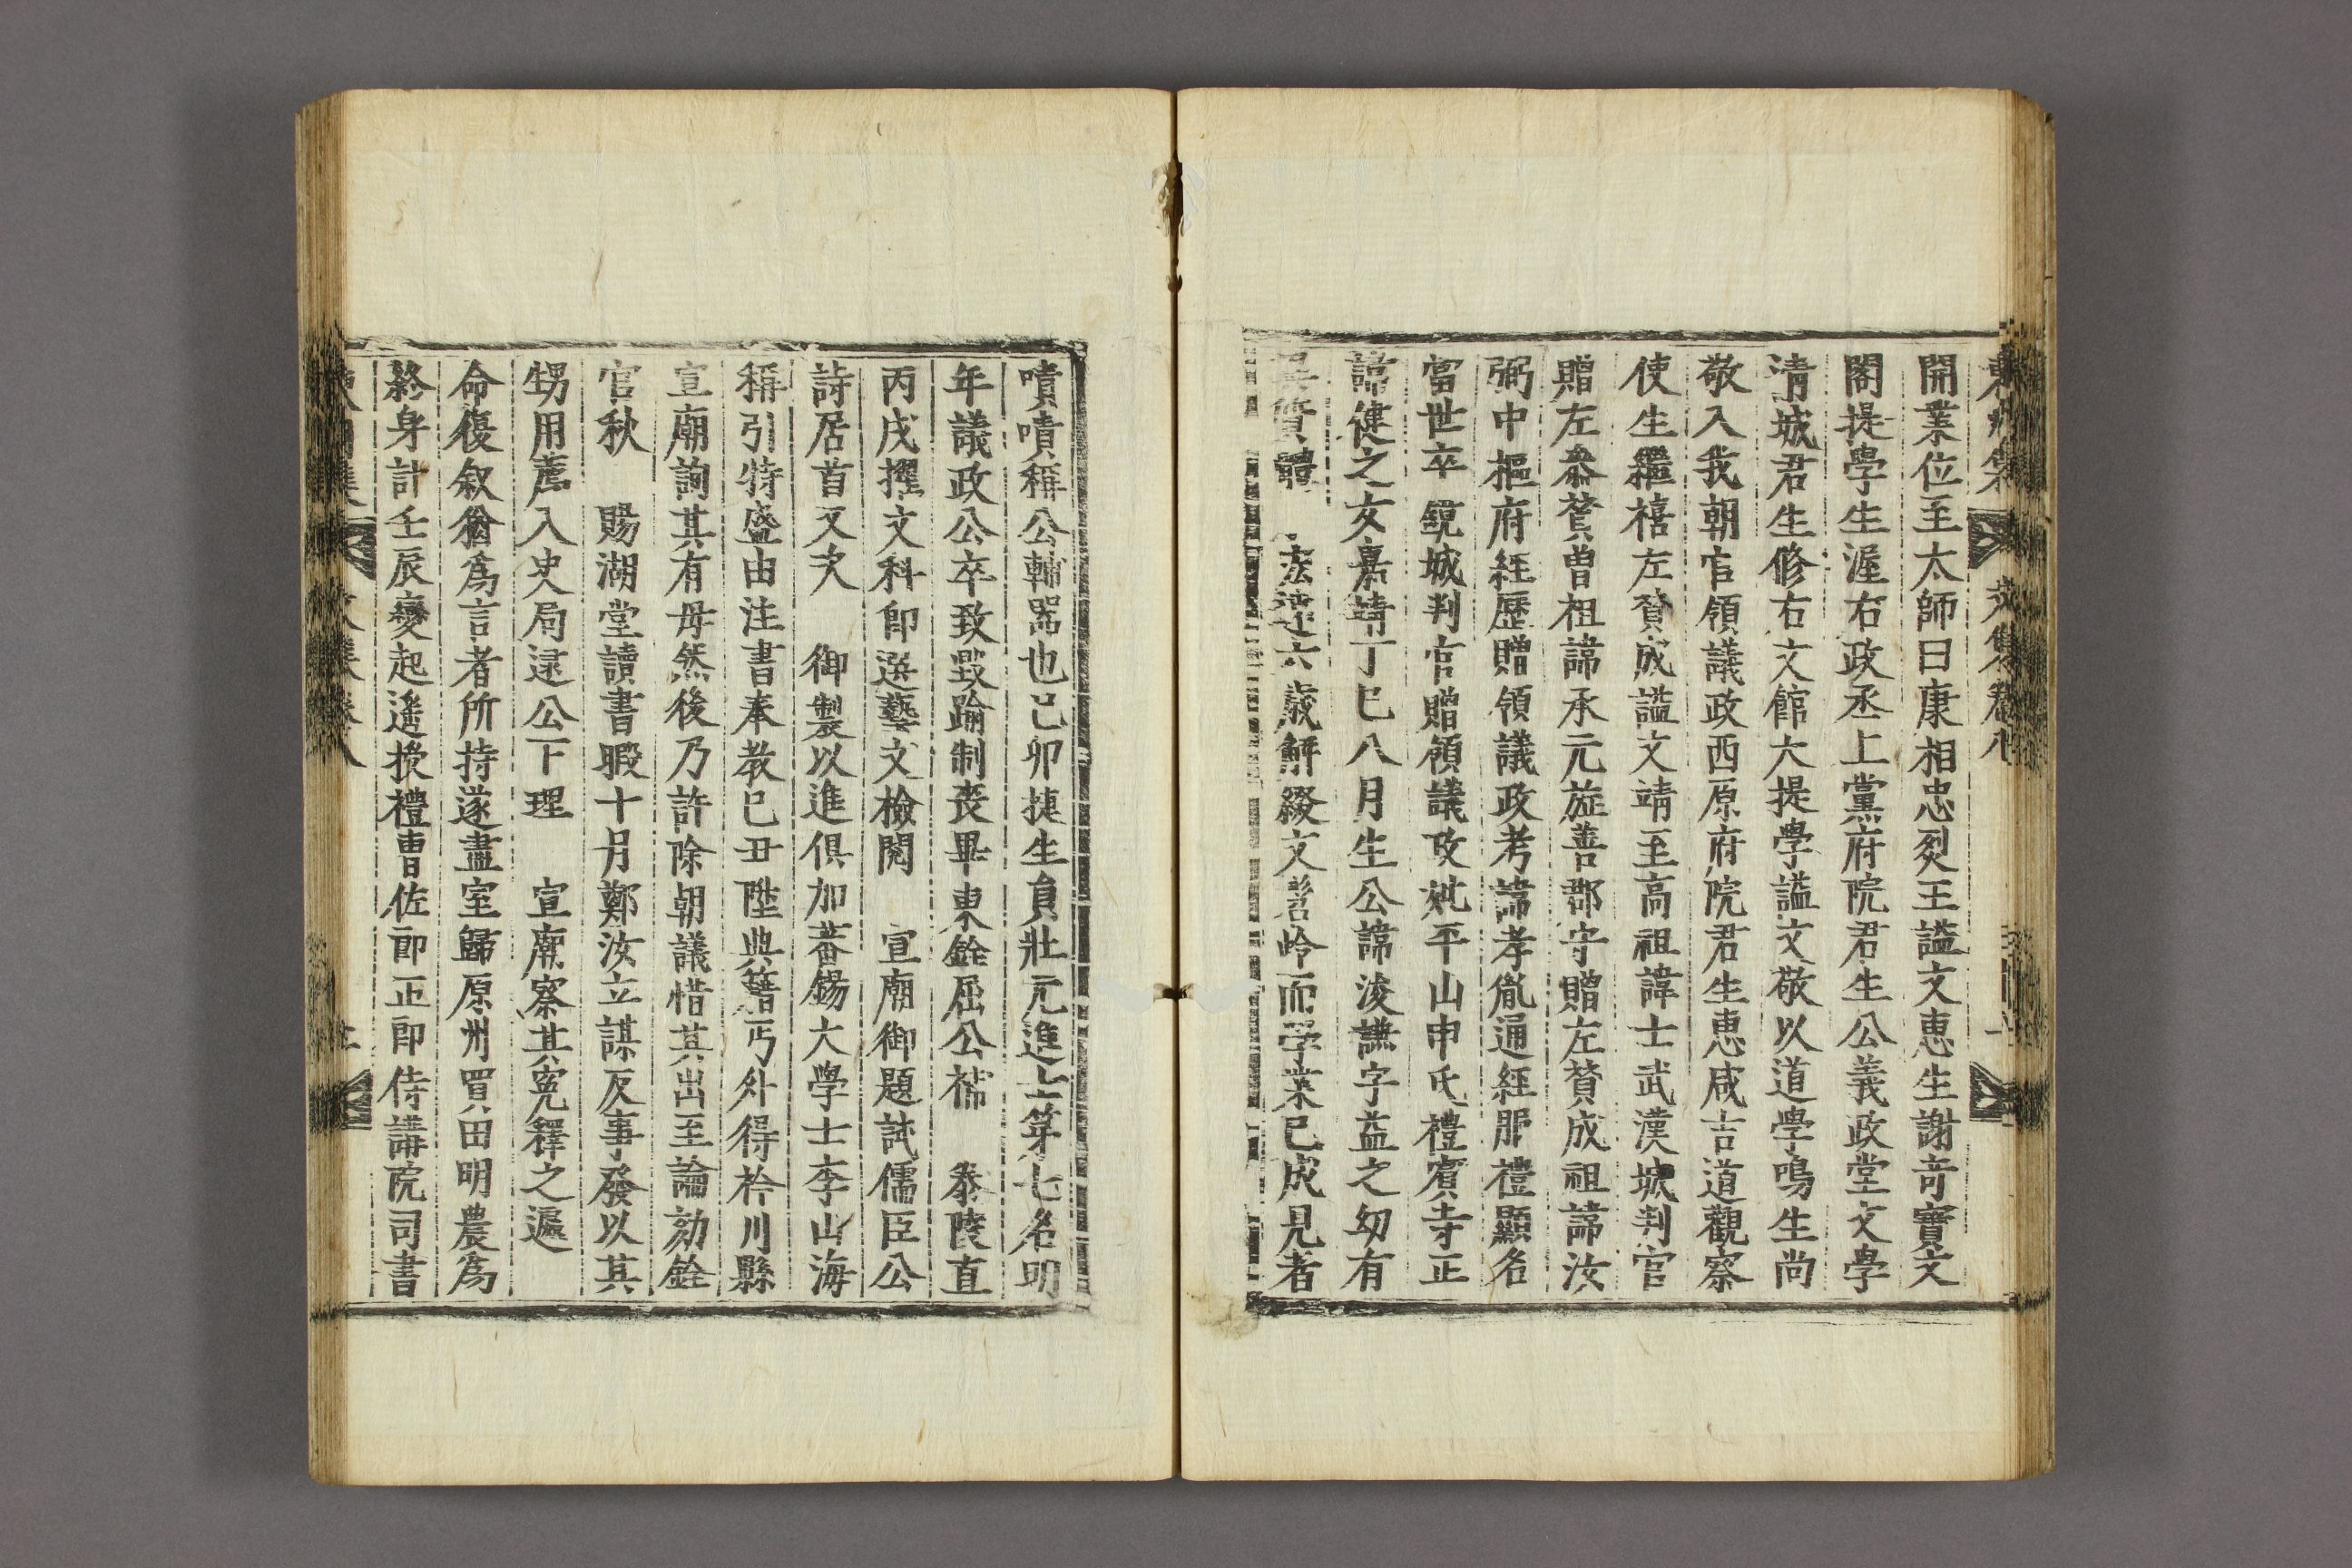 開業位至太師曰康相忠烈王謚文惠生謝奇寶文
閣提學生渥右政丞上黨府院君生公義政堂文學
清城君生脩右文館大提學謚文敬以道學鳴生尚
敬入我朝官領議政西原府院君生惠咸吉道觀察
使生繼禧左贊成謚文靖至高祖諱士武漢城判官
贈左叅贊曾祖諱承元㫌善郡守贈左贊成祖諱汝
弼中樞府經歷贈領議政考諱孝胤通經服禮顯名
當世卒鏡城判官贈領議政妣平山申氏禮賓寺正
諱健之女嘉靖丁巳八月生公諱浚謙字益之幼有
異質體 法禮六歲解綴文髫齡而學業已成見者
嘖嘖稱公輔器也己卯捷生員壯元進士第七名明
年議政公卒致毀踰制喪畢東銓屈公補 泰陵直
丙戌擢文科卽選藝文檢閱 宣廟御題試儒臣公
詩居首又次 御製以進俱加蕃錫大學士李山海
稱引特盛由注書奉教己丑陞典籍丐外得衿川縣
宣廟詢其有母然後乃許除朝議惜其出至論劾銓
官秋 賜湖堂讀書暇十月鄭汝立謀反事發以其
甥用薦入史局逮公下理 宣廟察其寃釋之遄
命復叙猶爲言者所持遂盡室歸原州買田明農爲
終身計壬辰變起遙授禮曹佐郎正郎侍講院司書